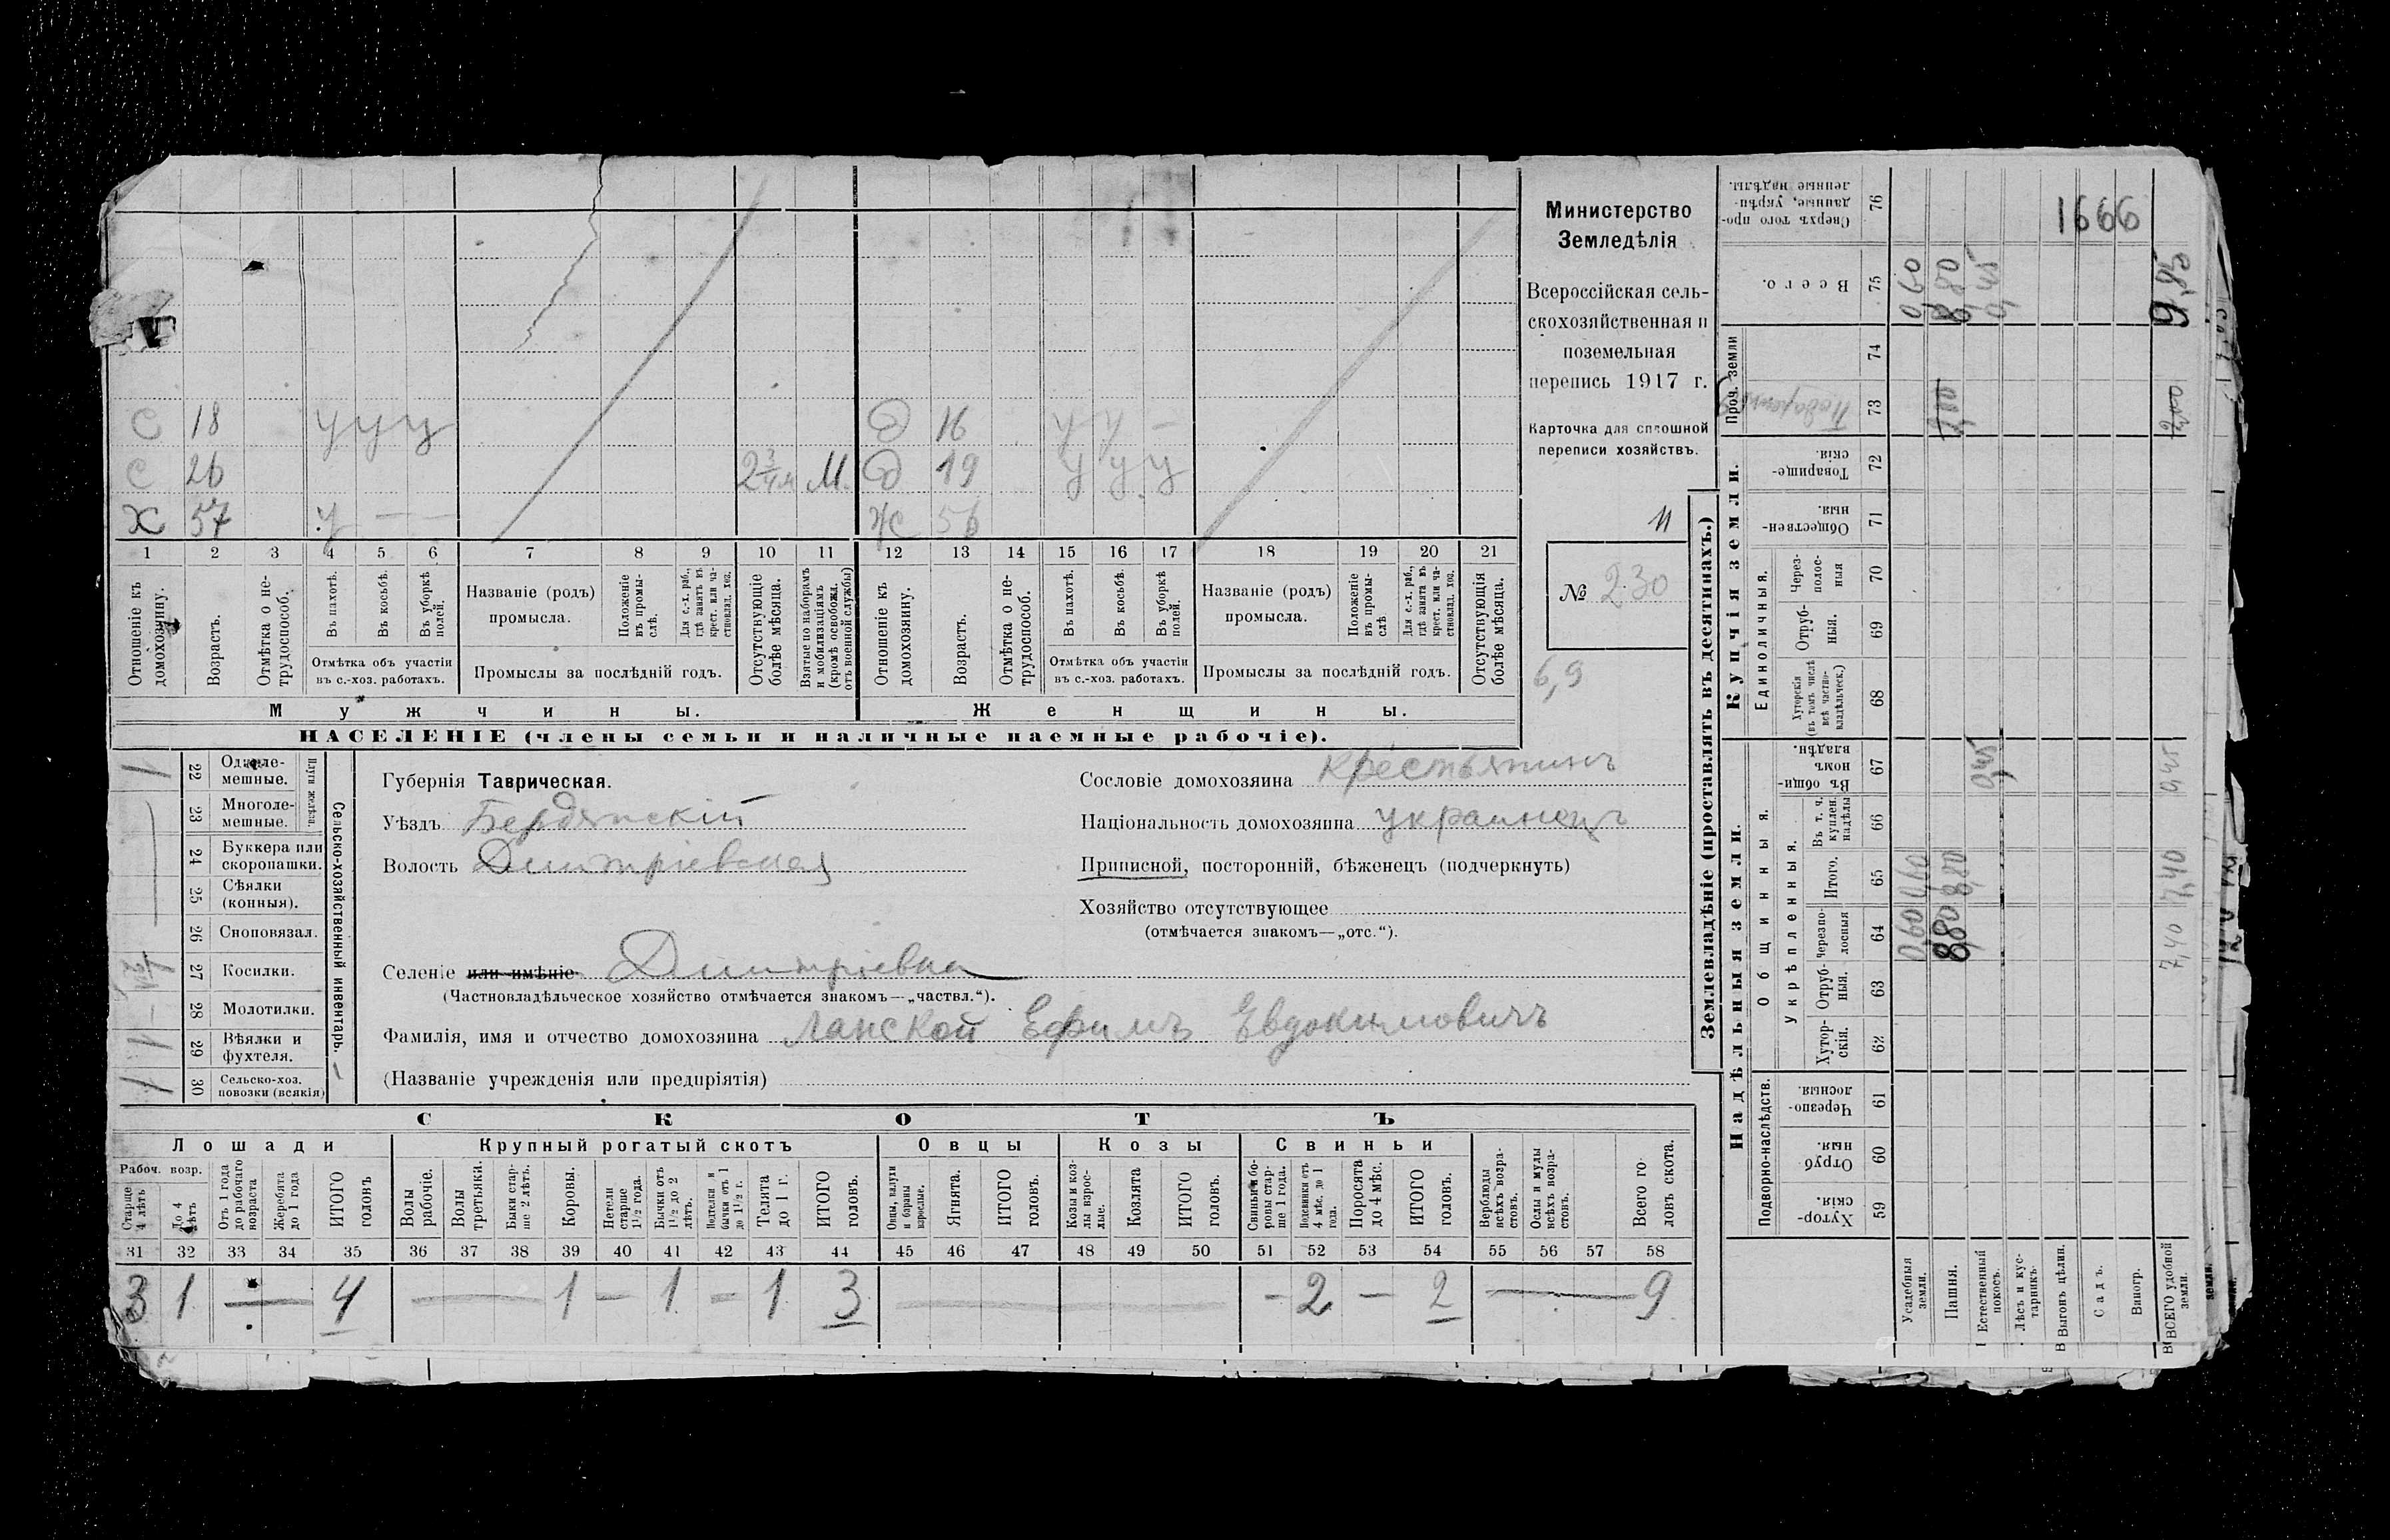 1666
Министерство
Земледѣлія
Всероссійская сель-
скохозяйственная и
поземельная
перепись 1917 г.
Карточка для сплошной
переписи хозяйствъ.
11
№ 230
6,9
С 18 У У У Д 16 У У —
С 26 2 3/4 м М. Д 19 У У У
Х 57 У — — Ж 56
1 2 3 4 5 6 7 8 9 10 11 12 13 14 15 16 17 18 19 20 21
Отношеніе къ домохозяину.
Возрастъ.
Отмѣтка о не-трудоспособ.
Въ пахотѣ.
Въ косьбѣ.
Въ уборкѣ полей.
Отмѣтка объ участіи
въ с.-хоз. работахъ.
Названіе (родъ)
промысла.
Положеніе въ промы-слѣ.
Для с.-х. раб., гдѣ занятъ въ крест. или ча-стновлад. хоз.
Промыслы за послѣдній годъ.
Отсутствующіе болѣе мѣсяца.
Взятые по наборамъ и мобилизаціямъ (кромѣ освобожд. отъ военной службы)
Отношеніе къ домохозяину.
Возрастъ.
Отмѣтка о не-трудоспособ.
Въ пахотѣ.
Въ косьбѣ.
Въ уборкѣ полей.
Отмѣтка объ участіи
въ с.-хоз. работахъ.
Названіе (родъ)
промысла.
Положеніе въ промы-слѣ
Для с.-х. раб., гдѣ занята въ крест. или ча-стновлад. хоз.
Промыслы за послѣдній годъ.
Отсутствующія болѣе мѣсяца.
Мужчины. Женщины.
НАСЕЛЕНІЕ (члены семьи и наличные наемные рабочіе).
Сельско-хозяйственный инвентарь.
Плуги желѣзн.
22 Одноле-мешные. 1
23 Многоле-мешные.
24 Буккера или скоропашки.
25 Сѣялки (конныя).
26 Сноповязал.
27 Косилки.
28 Молотилки. —
29 Вѣялки и фухтеля. 1
30 Сельско-хоз. повозки (всякія) 1
Губернія Таврическая.
Уѣздъ Бердянскій
Волость Дмитріевская
Сословіе домохозяина крестьянинъ
Національность домохозяина украинецъ
Приписной, посторонній, бѣженецъ (подчеркнуть)
Хозяйство отсутствующее
(отмѣчается знакомъ—„отс.“).
Селеніе или имѣніе Дмитріевка
(Частновладѣльческое хозяйство отмѣчается знакомъ—„частвл.“).
Фамилія, имя и отчество домохозяина Ланской Ефимъ Евдокимовичъ
(Названіе учрежденія или предпріятія)
СКОТЪ
Лошади Крупный рогатый скотъ Овцы Козы Свиньи
Рабоч. возр.
Старше 4 лѣтъ
До 4 лѣтъ
Отъ 1 года до рабочаго возраста
Жеребята до 1 года
ИТОГО головъ
Волы рабочіе.
Волы третьяки.
Быки стар-ше 2 лѣтъ.
Коровы.
Нетели старше 1½ года.
Бычки отъ 1½ до 2 лѣтъ.
Подтелки и бычки отъ 1 до 1½ г.
Телята до 1 г.
ИТОГО головъ.
Овцы, валухи и бараны взрослые.
Ягнята.
ИТОГО головъ.
Козы и коз-лы взрос-лые.
Козлята
ИТОГО головъ.
Свиньи и бо-ровы стар-ше 1 года.
Подсвинки отъ 4 мѣс. до 1 года.
Поросята до 4 мѣс.
ИТОГО головъ.
Верблюды всѣхъ возра-стовъ.
Ослы и мулы всѣхъ возра-стовъ.
Всего го-ловъ скота.
31 32 33 34 35 36 37 38 39 40 41 42 43 44 45 46 47 48 49 50 51 52 53 54 55 56 57 58
3 1 — 4 — 1 — 1 — 1 3 — — 2 — 2 — 9
Землевладѣніе (проставлять въ десятинахъ.)
Надѣльныя земли. Купчія земли. Проч. земли
Подворно-наслѣдств.
Общинныя.
Укрѣпленныя.
Единоличныя.
Хутор-скія. 59
Отруб-ныя. 60
Черезпо-лосныя. 61
Хутор-скія. 62
Отруб-ныя. 63
Черезпо-лосныя 64
Итого. 65
Въ т. ч. куплен. надѣлы 66
Въ общи-номъ владѣн. 67
Хуторскія (въ томъ числѣ всѣ частно-владѣльческ.) 68
Отруб-ныя. 69
Через-полос-ныя 70
Обществен-ныя. 71
Товарище-скія. 72
73
74
Всего. 75
Сверхъ того про-данные, укрѣп-ленные надѣлы. 76
Усадебныя земли. 0,60 0,60 0,60
Пашня. 8,80 8,80 2,00 8,80
Естественный покосъ. 0,45 0,45
Лѣсъ и кус-тарникъ.
Выгонъ цѣлин.
Садъ.
Виногр.
ВСЕГО удобной земли. 7,40 7,40 0,45 2,00 9,85